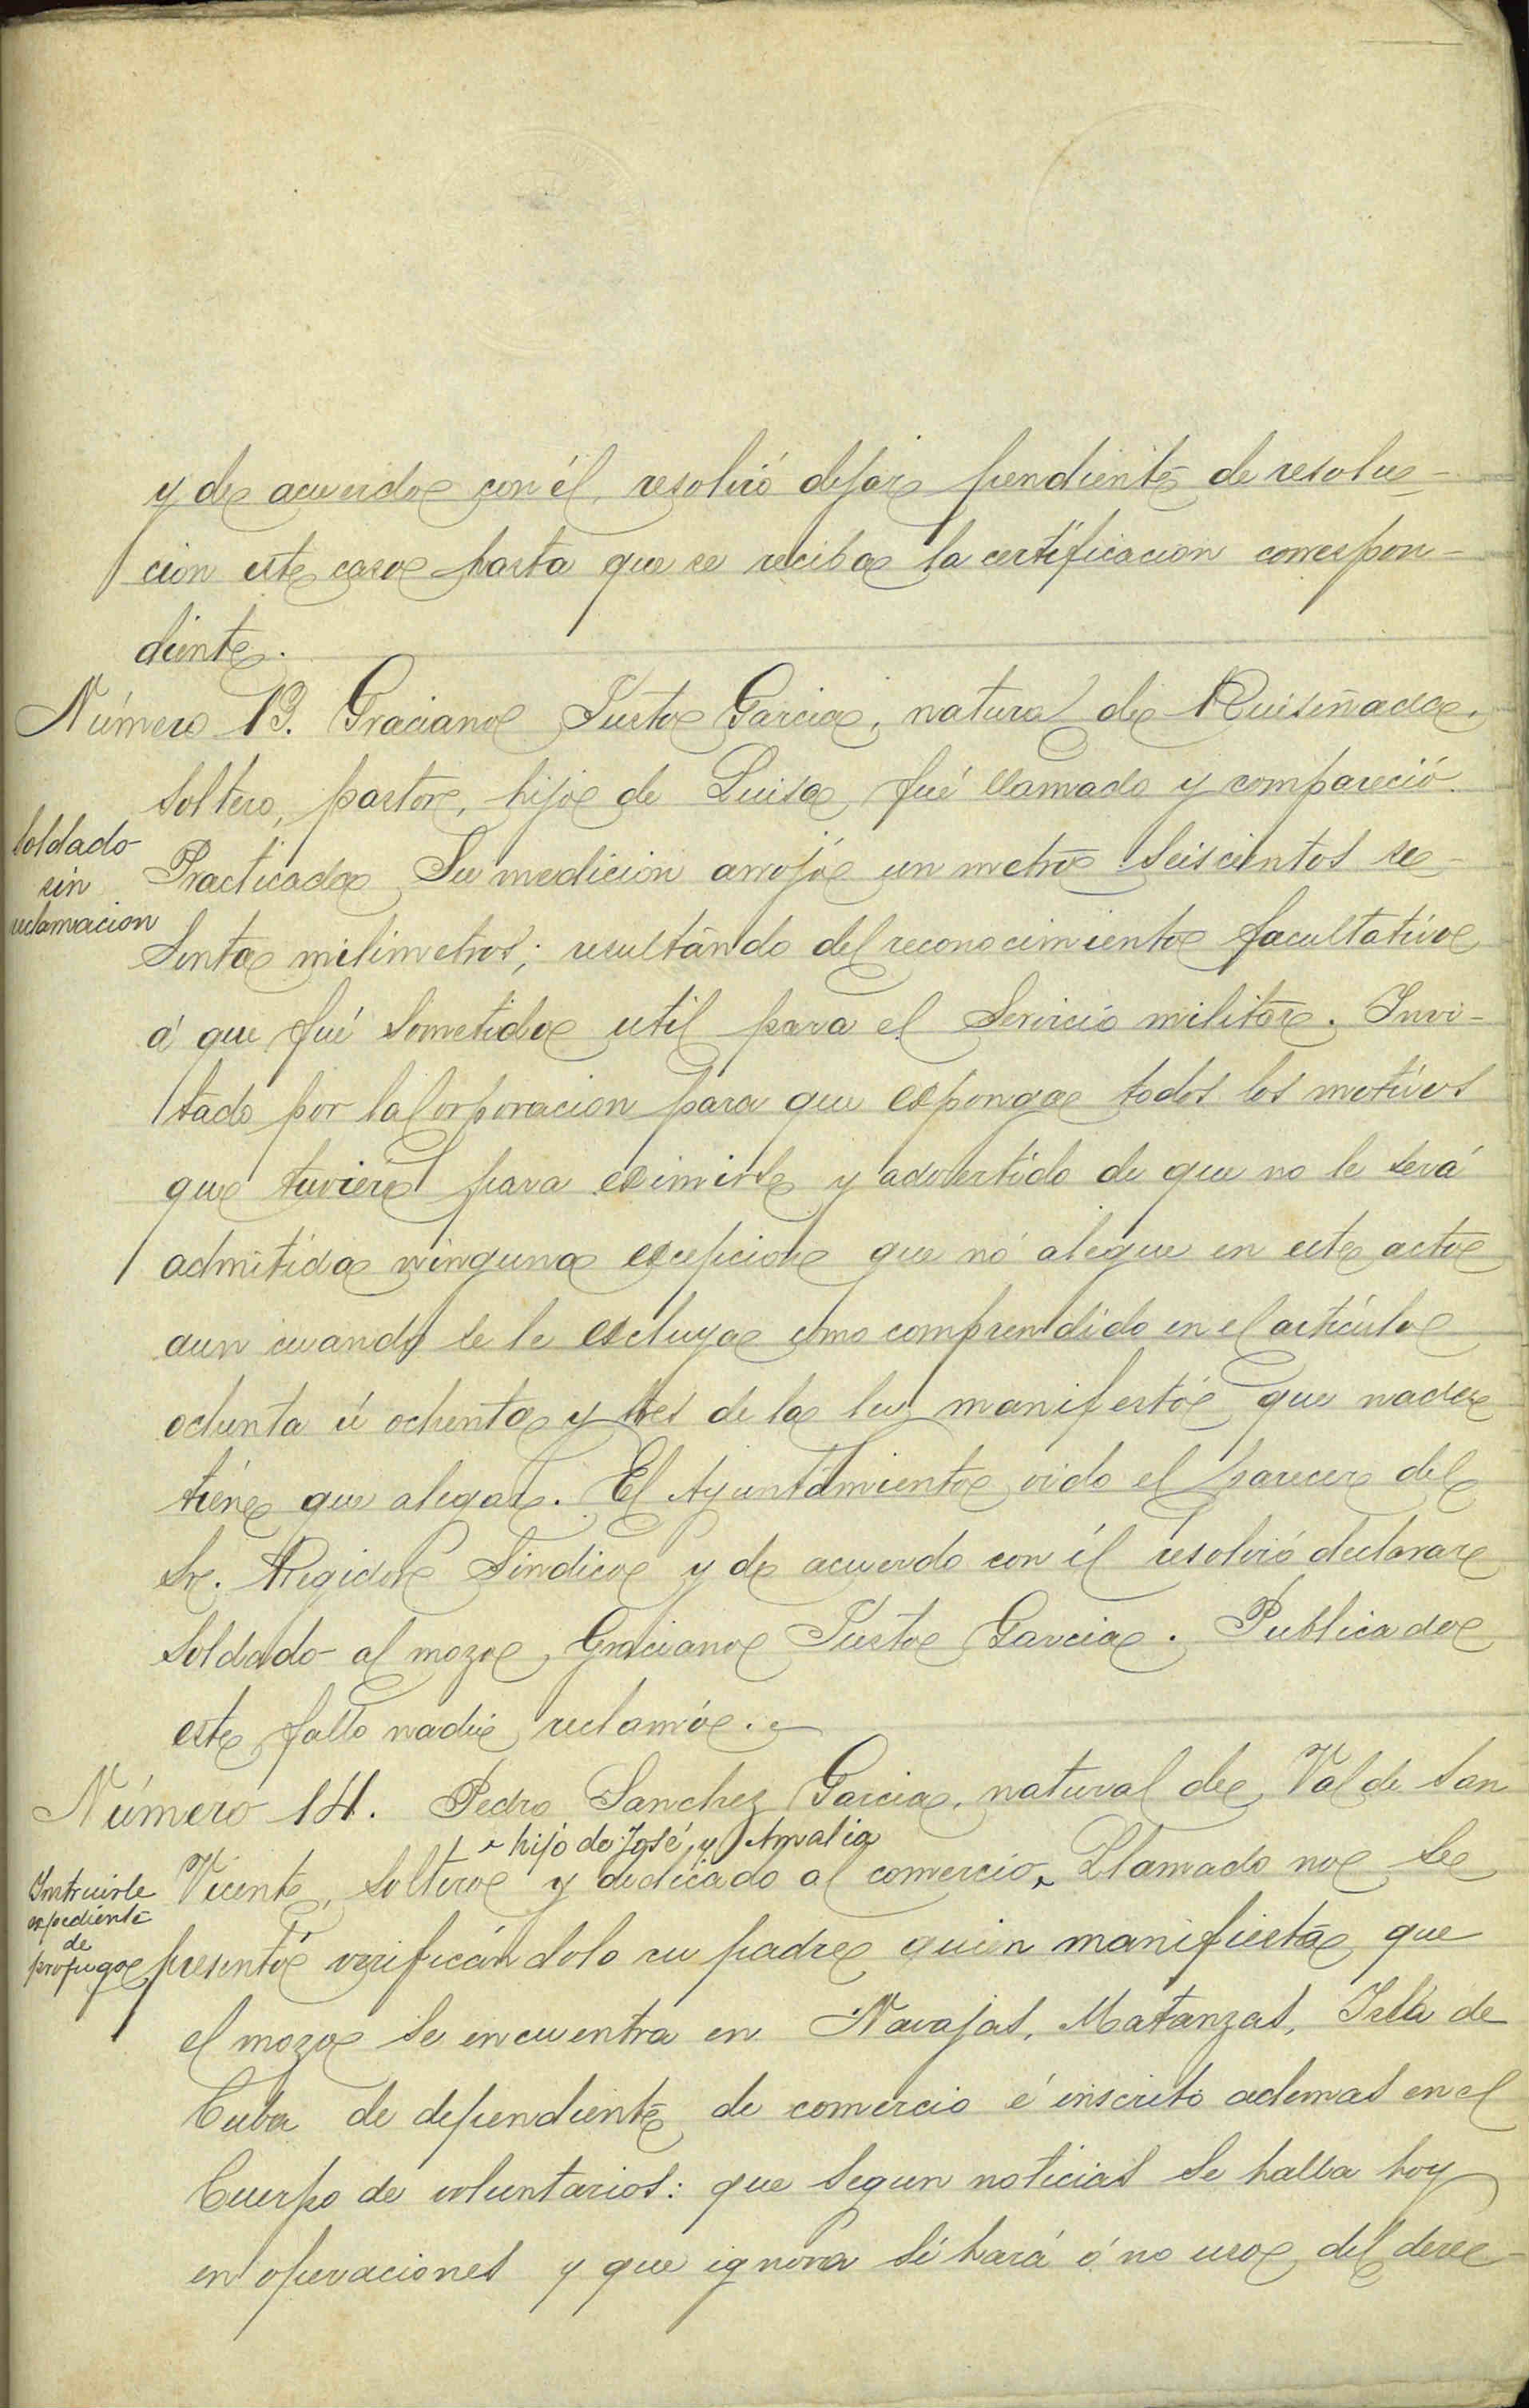 y de acuerdo con él, resolvió dejar pendiente de resolu-
cion este caso hasta que se reciba la certificacion correspon-
diente.
Número 13. Graciano Justo Garcia, natural de Ruiseñada,
soltero, pastor, hijo de Luisa, fué llamado y compareció.
Soldado
sin
reclamacion
Practicada su medicion arrojó un metro seiscientos se-
senta milimetros; resultando del reconocimiento facultativo
á que fué sometido util para el servicio militar. Invi-
tado por la Corporacion para que esponga todos los motivos
que tuviere para eximirse y advertido de que no le será
admitida ninguna escepcion que nó alegue en este acto
aun cuando se le escluya como comprendido en el artículo
ochenta ú ochenta y tres de la ley manifestó que nada
tiene que alegar. El Ayuntamiento oido el parecer del
Sr. Regidor Sindico y de acuerdo con él resolvió declarar
soldado al mozo Graciano Justo Garcia. Publicado
este fallo nadie reclamó.
Número 14. Pedro Sanchez Garcia, natural de Val de San
hijo de José, y Amalia
Vicente, soltero y dedicado al comercio. Llamado no se
Instruirle
expediente
de
profugo
presentó verificándolo su padre quien manifiesta que
el mozo se encuentra en Navajas, Matanzas, Isla de
Cuba de dependiente de comercio é inscrito ademas en el
Cuerpo de voluntarios: que segun noticias se halla hoy
en operaciones y que ignora si hará ó no uso del dere-